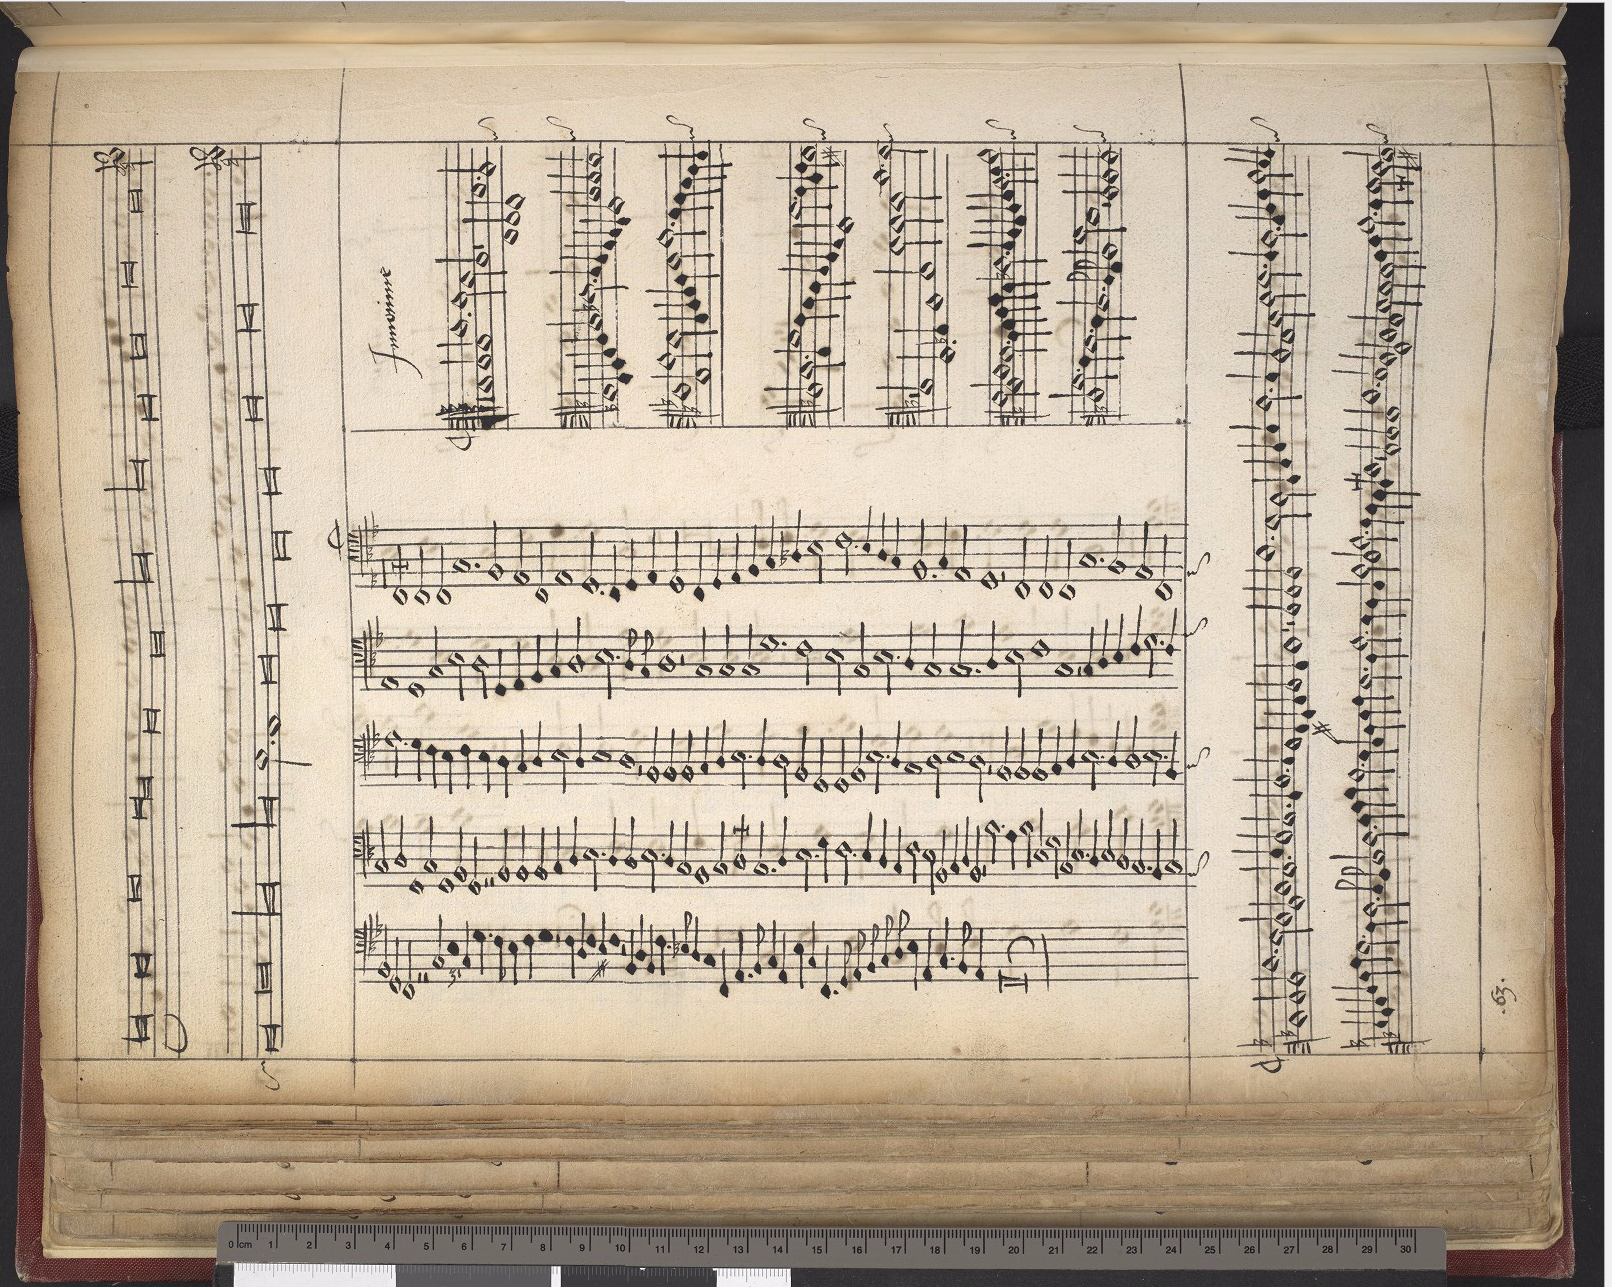 Innomine
.63.
0 cm 1 2 3 4 5 6 7 8 9 10 11 12 13 14 15 16 17 18 19 20 21 22 23 24 25 26 27 28 29 30